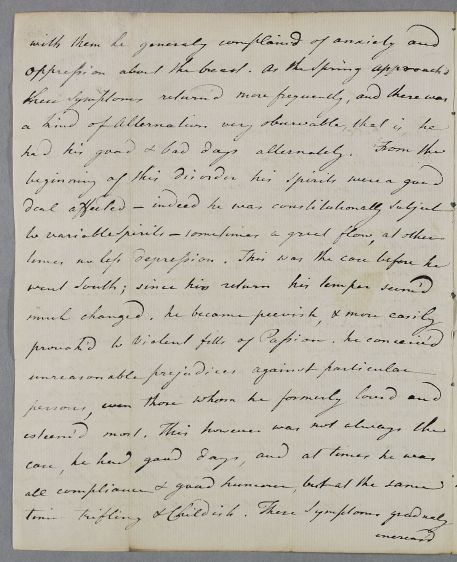 with them he generaly complain'd of anxiety and
oppression about the breast. As the Spring approach'd
these Symptoms return'd more frequently, and there was
a kind of Alternation very observeable, that is he
had his good & bad days alternately. From the
beginning of this disorder his Spirits were a good
deal affected – indeed he was constitutionally Subject
to variable Spirits – sometimes a great flow, at other
times no less depression. This was the case before he
went South; since his return his temper seem'd
much changed. he became peevish, & more easily
provok'd to violent fitts of Passion. he conceiv'd
unreasonable prejudices against particular
persons, even those whom he formerly loved and
esteem'd most. This however was not always the
case, he had good days, and at times he was
all compliance & good humour, but at the same
time trifling & Childish. These Symptoms gradualy
increas'd